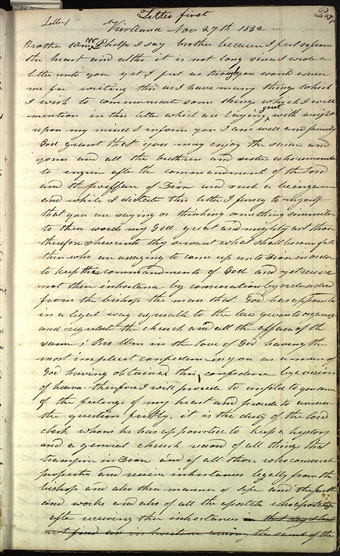 Letter first
Letter 1
Kirtland Nov 27th 1832
Brother Wm W Phelps I say brother because I feel so from
the heart and altho it is not long since I wrote a
letter unto you yet I feel as though you would excuse
me for writing this as I have many things which
I wish to communicate some things which I will
mention in this letter which are laying great with weight
upon my mind I inform you I am well and family
God grant that you may enjoy the same and
yours and all the brethren and sisters who remember
to enquire after the commandments of the Lord
and the welfare of Zion and such a being as me
and while I dictate this letter I fancy to myself
that you are saying or thinking something simmiler
to these words my God great and mighty art thou
therefore shew unto thy servant what shall become of all
these who are assaying to come up unto Zion in order
to keep the commandments of God and yet receive
not there inheritance by consecration by order or deed
from the bishop the man that God has appointed
in a legal way agreeably to the law given to organize
and regulate the church and all the affairs of the
same; Bro Wm in the love of God having the
most implicit confidence in you as a man of
God having obtained this confidence by a vision
of heaven therefore I will proceed to unfold to you some
of the feelings of my heart and proceed to answer
the question firstly, it is the duty of the lord
clerk whom he has appointed to keep a hystory
and a general church record of all things that
transpire in Zion and of all those who consecrate
properties and receive inheritances legally from the
bishop and also there manner of life and the faith
and works and also of all the apostates who apostatize
after receiving their inheritances